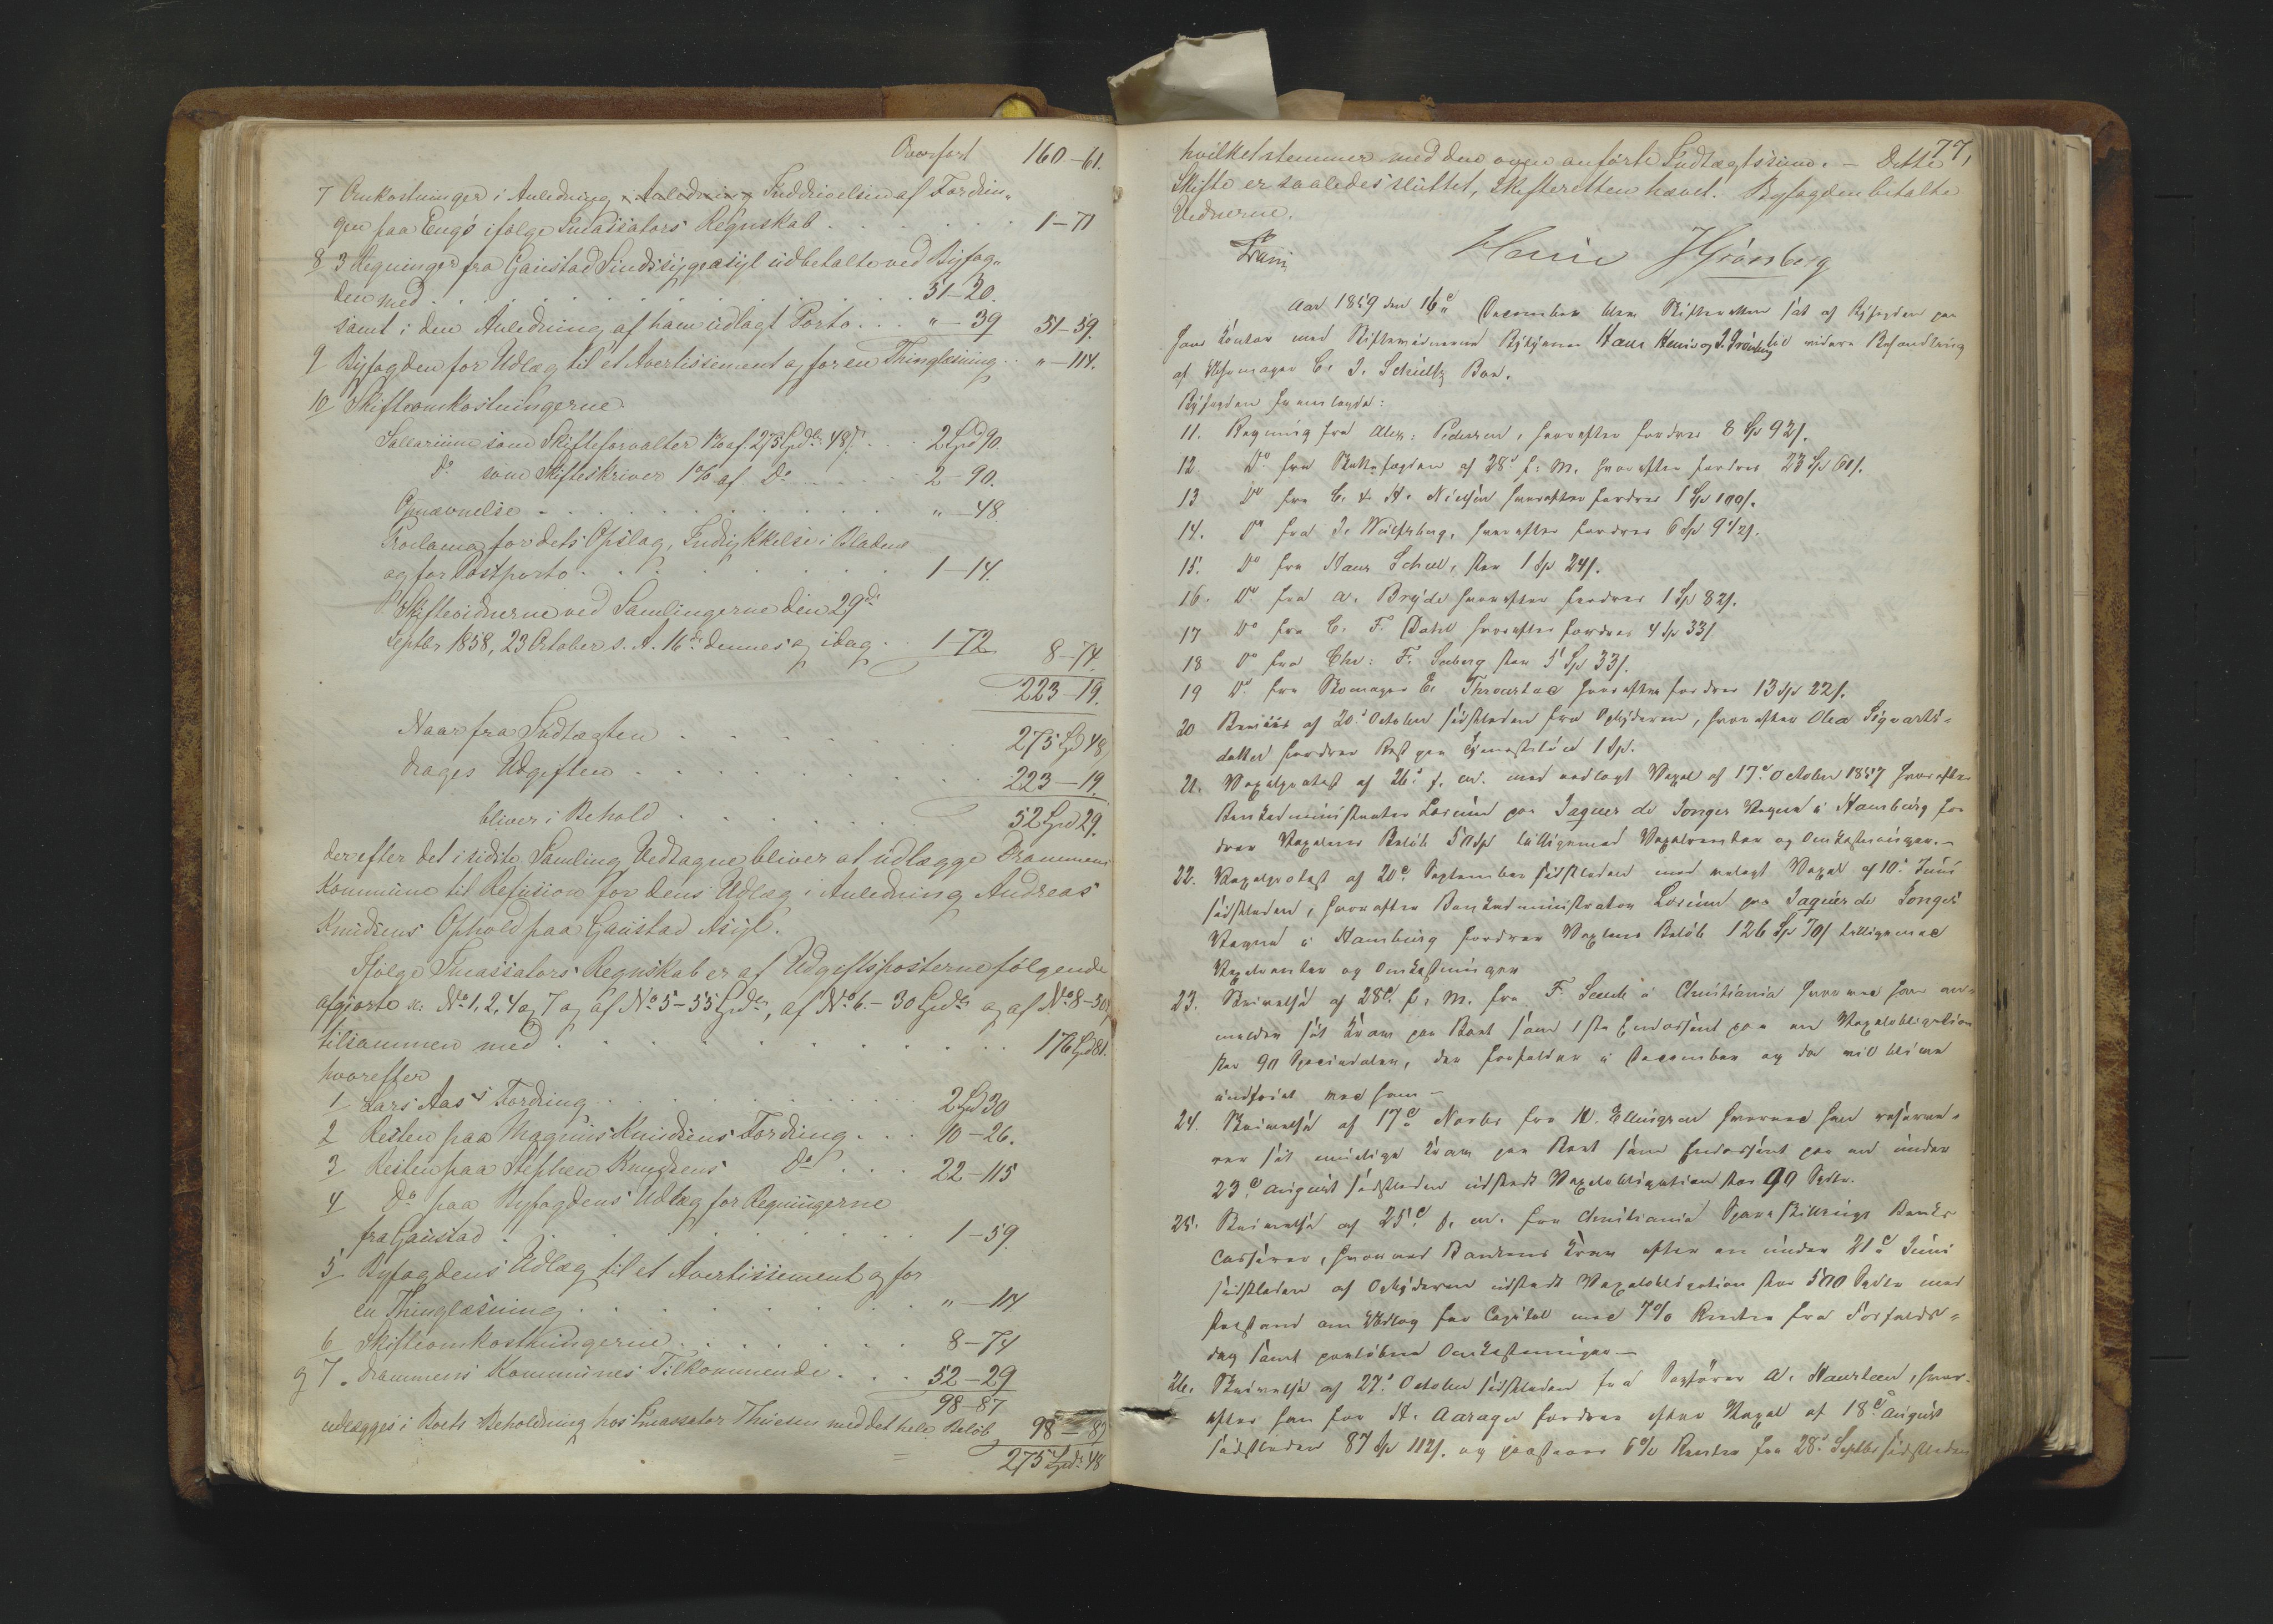 Overført 160-61.
7 Omkostninger i Anledning Anledning Inddrivelsen af Fordrin„
gen paa Engø ifølge Incassators Regnskab . . . . . 1-71
8 3 Regninger fra Gaustad Sindssygeasyl udbetalte ved Byfog„
den med . . . . . . . . . . 51-20.
samt i den Anledning af ham udlagt Porto . . . "-39 51-59.
9 Byfogden for Udlæg til et Avertissement og for en Thinglæsning . . "-114.
10 Skifteomkostningerne
Sallarium som Skifteforvalter 1% af 275 Spdlr 48 s. . . . 2 Spd 90.
Do som Skifteskriver 1% af Do . . . . 2-90.
Opnævnelse - . . . . . . . "-48
Proclama, for dets Opslag, Indrykkelse i Bladene
og for Postporto . . . . . . . 1-14.
Skiftevidnerne ved Samlingerne den 29de
Septbr 1858, 23 October s. A. 16de dennes og idag . 1-72 8-74.
223-19.
Naar fra Indtægten . . . . . . . 275 Spd 48,
drages Udgiften . . . . . . . . 223-19.
bliver i Behold . . . . . . . 52 Spd 29.
der efter det i sidste Samling Vedtagne bliver at udlægge Drammens
Kommune til Refusion for dens Udlæg i Anledning Andreas
Knudsens Ophold paa Gaustad Asyl.
Ifølge Incassators Regnskab er af Udgiftsposterne følgende
afgjorte x: No 1, 2, 4 og 7 og af No 5-55 Spdlr, af No 6.-30 Spdlr og af No 8-50,
tilsammen med . . . . . . . . 176 Spd 81.
hvorefter
1 Lars Aas's Fordring . . . . . . . 2 Spd 30
2 Resten paa Magnus Knudsens Fordring . . . 10-26.
3 Resten paa Stephen Knudsens Do . . . 22-115
4 Do paa Byfogdens Udlæg for Regningerne
fra Gaustad . . . . . . . . 1-59.
5 Byfogdens Udlæg til et Avertissement og for
en Thinglæsning . . . . . . . . "-114
6 Skifteomkostningerne . . . . . . 8-74
og 7. Drammens Kommunes Tilkommende . . . 52-29
98-87
udlægges i Boets Beholdning hos Incassator Thuesen med det hele Beløb 98-87
275 Spdr 48
77,
hvilket stemmer med den ovenanførte Indtægtssum. - Dette
Skifte er saaledes sluttet, Skifteretten hævet. Byfogden betalte
Vidnerne.
Henie JGrønberg
Aar 1859 den 16de December blev Skifteretten sat af Byfogden paa
hans Contor med Skiftevidnerne Rykjenes Hans Henie og J. Grønberg til videre Behandling
af Uhrmager C. J. Schultz Boe.
Byfogden fremlagde:
11. Regning fra Alex: Pedersen, hvorefter fordres 8 Sp 92 s.
12. Do fra Rakefogden af 28de f: M. hvorefter fordres 23 Sp 60 s.
13 Do fra C. & A. Nielsen hvorefter fordres 1 Sp 100 s.
14. Do fra J. Wulfsberg, hvorefter fordres 6 Sp 9 1/2 s.
15. Do fra Hans Scheel, stor 1 Sp 24 s.
16. Do fra A. Bryde hvorefter fordres 1 Sp 82 s.
17 Do fra C. F. Dahl hvorefter fordres 4 Sp 33 s
18 Do fra Chr: F. Seeberg stor 5 Sp 33 s.
19 Do fra Skomager E. Thronstad hvorefter fordres 13 Sp 22 s.
20 af 20de October sidstleden fra Opbyderen, hvorefter Olea Sigvarts-
datter fordrer Rest paa Tjenesteløn 1 Sp.
21. Vexelprotest af 26de f. M. med vedlagt Vexel af 17de October 1857 hvorefter
Bankadministrator Lorentz paa Jaques de Jonges Vegne i Hamburg for
drer Vexelens Beløb 50 Sp tilligemed Vexelrenter og Omkostninger. -
22. Vexelprotest af 20de September sidstleden med vedlagt Vexel af 10de Juni
sidstleden, hvorefter Bankadministrator Lorentz paa Jaques de Jonges
Vegne i Hamburg fordrer Vexlens Beløb 126 Sp 70 s tilligemed
Vexelrenter og Omkostninger
23. Skrivelse af 28de f. M. fra F. i Christiania hvorved han an-
melder sit Krav paa Boet som 1ste Endossent paa en Vexelobligation
stor 90 Speciedaler, der forfalder i December og da vil blive
indfriet med ham -
24. Skrivelse af 17de Novbr fra N. Ellingsen hvorved han reserve-
rer sit mulige Krav paa Boet som Endossent paa en under
23de August sidstleden udstedt Vexelobligation stor 90 Spdlr.
25. Skrivelse af 25de f. M. fra Christiania Spareskillings Banks
Casserer, hvorved Bankens Krav efter en under 21de Juni
sidstleden af Opbyderen udstedt Vexelobligation stor 500 Spdlr med
Paastand om Udlæg for Capital med 7% Renter fra Forfalds-
dag samt paaløbne Omkostninger -
26. Skrivelse af 27de October sidstleden fra Sagfører A. Hansteen, hvor-
efter han for H. Aarager fordrer efter Vexel af 18de August
sidstleden 87 Sp 112 s. og paastaaer 6% Renter fra 28de Septbr sidstleden